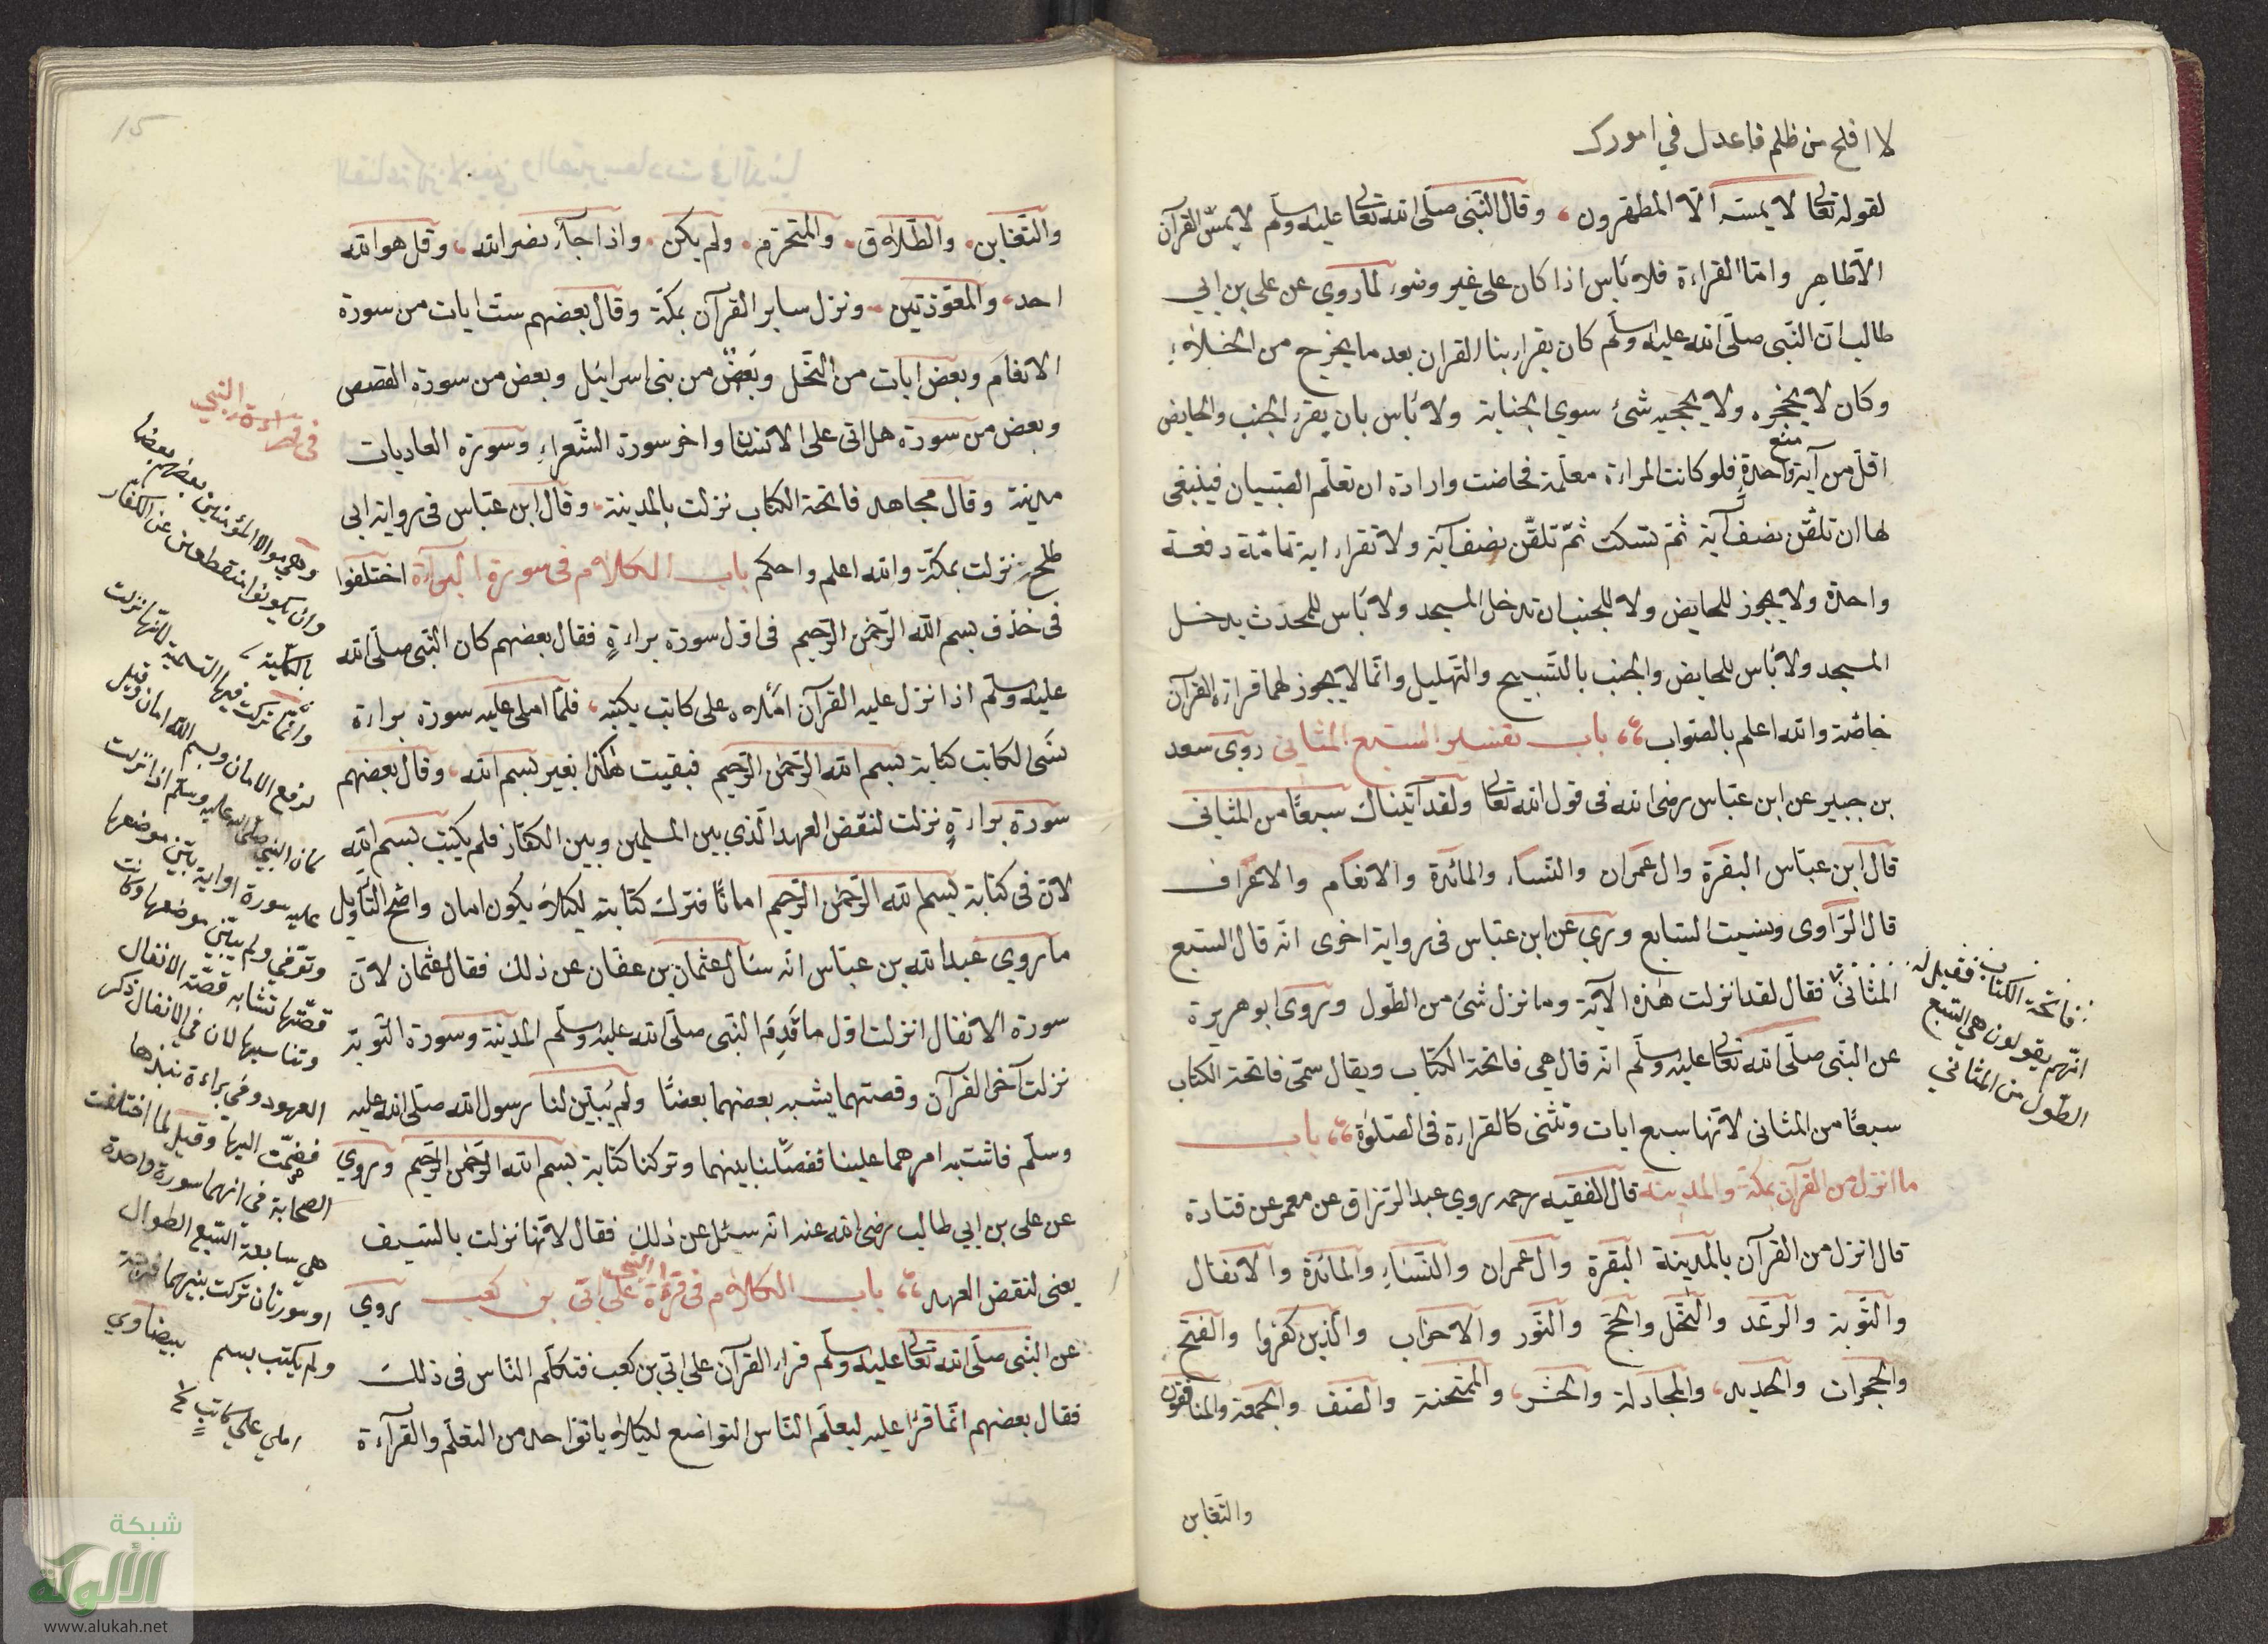 لا افلح من ظلم فاعدل في امورك
لقوله تعالى لا يمسه الا المطهرون وقال النبى صلى الله تعالى عليه وسلم لا يمس القرآن
الا طاهر واما القراءة فلا بأس اذا كان على غير وضوء لما روي عن على بن ابي
طالب ان النبى صلى الله عليه وسلم كان يقرا بنا القران بعد ما يخرج من الخلاء
وكان لا يحجزه ولا يحجبه شئ سوي الجنابة ولا بأس بان يقرا الجنب والحايض
اقل من آية واحدة فلو كانت المراءة معلمة فحاضت وارادة ان تعلم الصبيان فينبغى
لها ان تلقن نصف آية ثم تسكت ثم تلقن نصف آية ولا تقرا اية تامة دفعة
واحدة ولا يجوز للحايض ولا للجنب ان تدخل المسجد ولا بأس للمحدث يدخل
المسجد ولا بأس للحايض والجنب بالتسبيح والتهليل وانما لا يجوز لهما قراءة القرآن
خاصة والله اعلم بالصواب باب تفسير السبع المثانى روى سعد
بن جبير عن ابن عباس رضى الله فى قول الله تعالى ولقد آتيناك سبعًا من المثانى
قال ابن عباس البقرة وال عمران والنساء والمائدة والانعام والاعراف
قال الراوى ونسيت السابع وروي عن ابن عباس فى رواية اخرى انه قال السبع
المثانى فقال لقد انزلت هذه الآية وما نزل شئ من الطول وروى ابو هريرة
عن النبى صلى الله تعالى عليه وسلم انه قال هي فاتحة الكتاب ويقال سمى فاتحة الكتاب
سبعًا من المثانى لانها سبع ايات وتثنى كالقراءة فى الصلوة باب
ما انزل من القرآن بمكة والمدينة قال الفقيه رحمه روي عبد الرزاق عن معمر عن قتادة
قال انزل من القرآن بالمدينة البقرة وال عمران والنساء والمائدة والانفال
والتوبة والرعد والنحل والحج والنور والاحزاب والذين كفروا والفتح
والحجرات والحديد والمجادلة والحشر والممتحنة والصف والجمعة والمنافقون
والتغابن
فاتحة الكتاب فقيل له
انهم يقولون هي السبع
الطول من المثاني
والتغابن والطلاق والمتحرم ولم يكن واذا جاء نصر الله وقل هو الله
احد والمعوذتين ونزل ساير القرآن بمكة وقال بعضهم ست ايات من سورة
الانعام وبعض ايات من النحل وبعض من بنى اسرائيل وبعض من سورة القصص
وبعض من سورة هل اتى على الانسان واخر سورة الشعراء وسورة العاديات
مدينة وقال مجاهد فاتحة الكتاب نزلت بالمدينة وقال ابن عباس فى رواية ابى
طلح نزلت بمكة والله اعلم واحكم باب الكلام فى سورة البراءة اختلفوا
فى حذف بسم الله الرحمن الرحيم فى اول سورة براءة فقال بعضهم كان النبى صلى الله
عليه وسلم اذا نزل عليه القرآن املاه على كاتب يكتبه فلما املى عليه سورة براءة
نسى الكاتب كتابة بسم الله الرحمن الرحيم فبقيت هكذا بغير بسم الله وقال بعضهم
سورة براءة نزلت لنقض العهد الذي بين المسلمين وبين الكفار فلم يكتب بسم الله
لان فى كتابة بسم الله الرحمن الرحيم امانًا فترك كتابة لكيلا يكون امان واضح التأويل
ما روي عبد الله بن عباس انه سال عثمان بن عفان عن ذلك فقال عثمان لان
سورة الانفال انزلت اول ما قدم النبى صلى الله عليه وسلم المدينة وسورة التوبة
نزلت آخر القرآن وقصتهما يشبه بعضهما بعضًا ولم يبين لنا رسول الله صلى الله عليه
وسلم فاشتبه امرهما علينا ففصلنا بينهما وتركنا كتابة بسم الله الرحمن الرحيم وروي
عن على بن ابي طالب رضى الله عنه انه سئل عن ذلك فقال لانها نزلت بالسيف
يعنى لنقض العهد باب الكلام فى قرءة النبى على ابى بن كعب روي
عن النبى صلى الله تعالى عليه وسلم قراء القرآن على ابي بن كعب فتكلم الناس فى ذلك
فقال بعضهم انما قرا عليه ليعلم الناس التواضع لكيلا يانوا حد من التعلم والقرآءة
فى قراءة النبي
وهي موالاة المؤمنين بعضهم بعضا
وان يكونوا منقطعين عن الكفار
بالكلية
وانما تركت فيها التسمية لانها نزلت
لرفع الامان وبسم الله امان وقيل
كان النبي صلى الله عليه وسلم اذا نزلت
عليه سورة او اية بين موضعها
وتوفي ولم يبين موضعها وكانت
قصتها تشابه قصة الانفال
وتناسبها لان في الانفال ذكر
العهود وفي براءة نبذها
فضمت اليها وقيل لما اختلفت
الصحابة في انهما سورة واحدة
هي سابعة السبع الطوال
او سورتان تركت بينهما فرجة
ولم يكتب بسم بيضاوي
املي علي كاتب
شبكة
الألوكة
www.alukah.net